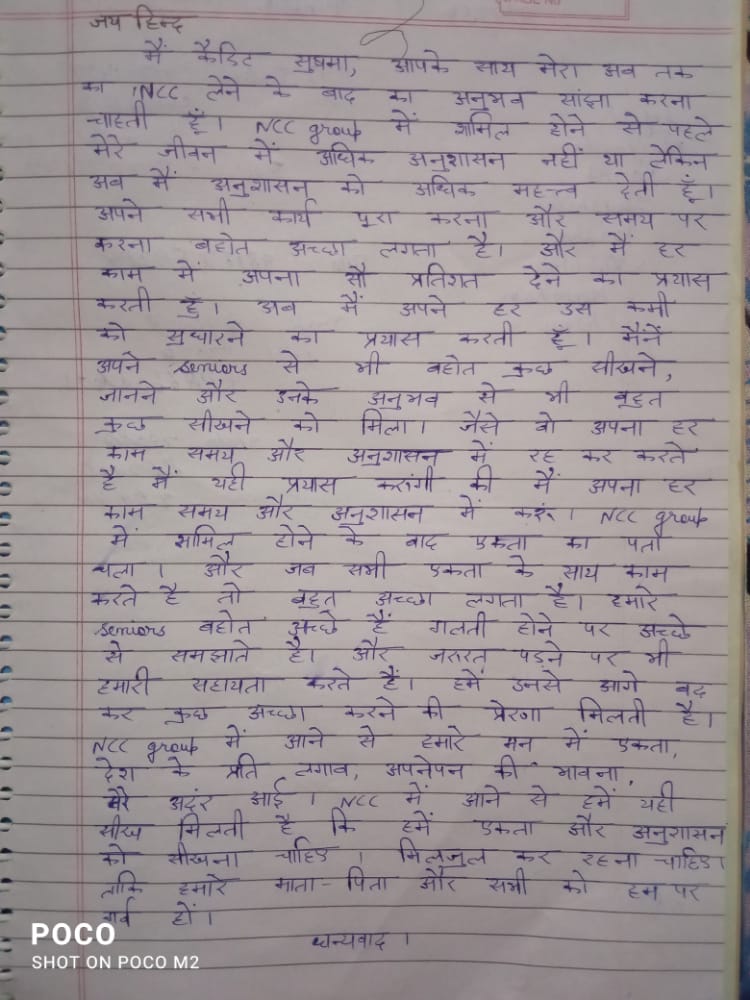 जय हिन्द
मैं कैडिट सुषमा, आपके साथ मेरा अब तक
का NCC लेने के बाद का अनुभव सांझा करना
चाहती हूँ। NCC group में शामिल होने से पहले
मेरे जीवन में अधिक अनुशासन नहीं था लेकिन
अब मैं अनुशासन को अधिक महत्व देती हूँ।
अपने सभी कार्य पूरा करना और समय पर
करना बहोत अच्छा लगता है। और मैं हर
काम में अपना सौ प्रतिशत देने का प्रयास
करती हूँ। अब मैं अपने हर उस कमी
को सुधारने का प्रयास करती हूँ। मैनें
अपने seniors से भी बहोत कुछ सीखने,
जानने और उनके अनुभव से भी बहुत
कुछ सीखने को मिला। जैसे वो अपना हर
काम समय और अनुशासन में रह कर करते
है मैं यही प्रयास करुंगी की मैं अपना हर
काम समय और अनुशासन में करूं। NCC group
में शामिल होने के बाद एकता का पता
चला। और जब सभी एकता के साथ काम
करते है तो बहुत अच्छा लगता है। हमारे
seniors बहोत अच्छे हैं गलती होने पर अच्छे
से समझाते है। और जरुरत पड़ने पर भी
हमारी सहायता करते हैं। हमें उनसे आगे बढ
कर कुछ अच्छा करने की प्रेरणा मिलती है।
NCC group में आने से हमारे मन में एकता,
देश के प्रति लगाव, अपनेपन की भावना,
मेरे अदंर आई। NCC में आने से हमें यही
सीख मिलती है कि हमें एकता और अनुशासन
को सीखना चाहिए। मिलजुल कर रहना चाहिए।
ताकि हमारे माता-पिता और सभी को हम पर
गर्व हों।
धन्यवाद।
POCO
SHOT ON POCO M2